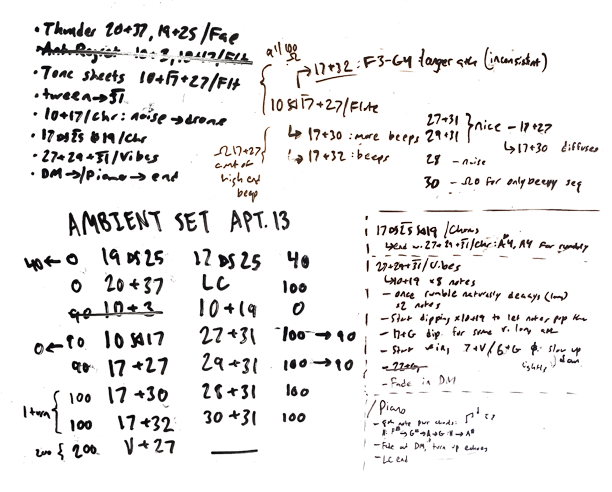 • Thunder 20+37, 19+25/Fae
• Tone sheets 10+17+27/Flt
• tween→31
• 10+17/chr: noise→drone
• 17 25 19/Chr
• 27+29+31/Vibes
• DM→/Piano→end
all 100
Ω
17+32: F3-G4 longer atk (inconsistent)
10 17+27/Flute
↳ 17+30: more beeps
↳ 17+32: beeps
Ω 17+27
amt of
high end
beep
27+31
29+31
nice - 17+27
↳ 17+30 diffuses
28 - noise
30 - Ω0 for only beepy seq
AMBIENT SET APT. 13
40 ← 0 19 25 17 25 40
0 20+37 LC 100
90 10+3 10+19 0
0 ← 90 10 17 27+31 100 → 90
90 17+27 29+31 100 → 90
100 17+30 28+31 100
1 turn
100 17+32 30+31 100
200 { 200 V+27
17 25 19/Chorus
↳ end w. 27+29+31/chr: A4, A4 for
27+29+31/Vibes
↳ 10+19 x8 notes
- once rumble naturally decays (low)
x2 notes
- Start dipping x10+19 to let notes pop thru
- 17+G dip for some v. long atk
- Start 7+V/G+G slow up
down
- Fade in DM
/Piano
- note pwr chords:
- Fade out DM, turn up echoes
- LC end